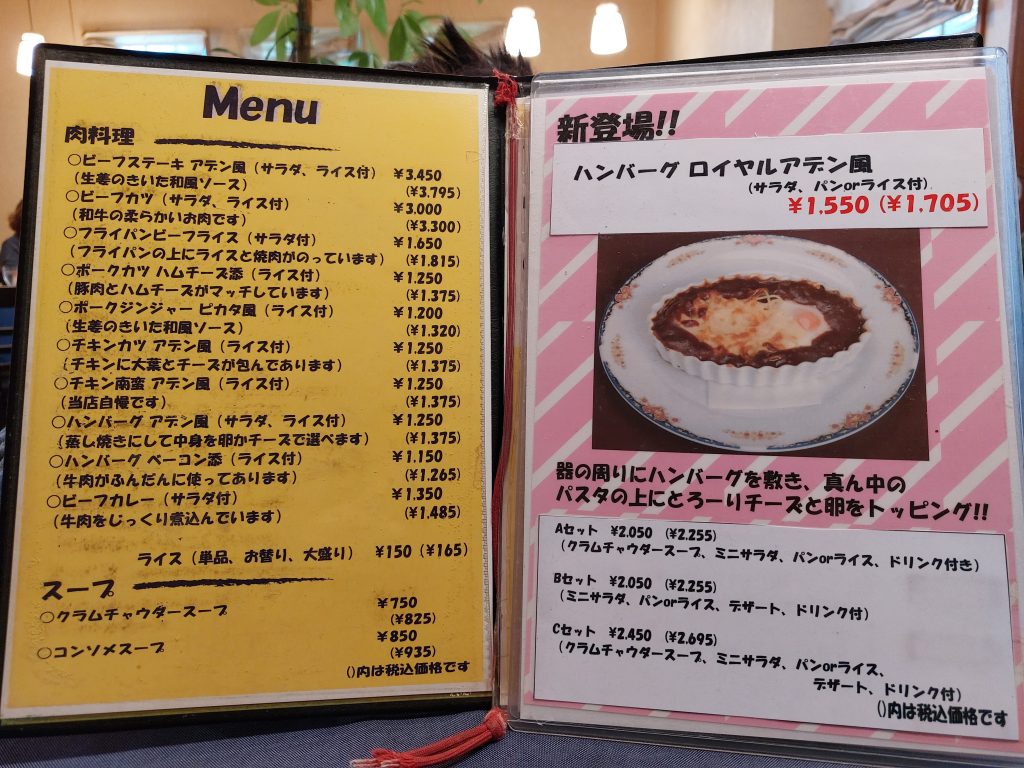 Menu
肉料理
○ビーフステーキ アデン風（サラダ、ライス付） ¥3,450
（生姜のきいた和風ソース） (¥3,795)
○ビーフカツ（サラダ、ライス付） ¥3,000
（和牛の柔らかいお肉です） (¥3,300)
○フライパンビーフライス（サラダ付） ¥1,650
（フライパンの上にライスと焼肉がのっています） (¥1,815)
○ポークカツ ハムチーズ添（ライス付） ¥1,250
（豚肉とハムチーズがマッチしています） (¥1,375)
○ポークジンジャー ピカタ風（ライス付） ¥1,200
（生姜のきいた和風ソース） (¥1,320)
○チキンカツ アデン風（ライス付） ¥1,250
（チキンに大葉とチーズが包んであります） (¥1,375)
○チキン南蛮 アデン風（ライス付） ¥1,250
（当店自慢です） (¥1,375)
○ハンバーグ アデン風（サラダ、ライス付） ¥1,250
（蒸し焼きにして中身を卵かチーズで選べます） (¥1,375)
○ハンバーグ ベーコン添（ライス付） ¥1,150
（牛肉がふんだんに使ってあります） (¥1,265)
○ビーフカレー（サラダ付） ¥1,350
（牛肉をじっくり煮込んでいます） (¥1,485)
ライス（単品、お替り、大盛り） ¥150（¥165）
スープ
○クラムチャウダースープ ¥750
(¥825)
○コンソメスープ ¥850
(¥935)
()内は税込価格です
新登場!!
ハンバーグ ロイヤルアデン風
（サラダ、パンorライス付）
¥1,550（¥1,705）
器の周りにハンバーグを敷き、真ん中の
パスタの上にとろーりチーズと卵をトッピング!!
Aセット ¥2,050（¥2,255）
（クラムチャウダースープ、ミニサラダ、パンorライス、ドリンク付き）
Bセット ¥2,050（¥2,255）
（ミニサラダ、パンorライス、デザート、ドリンク付）
Cセット ¥2,450（¥2,695）
（クラムチャウダースープ、ミニサラダ、パンorライス、
デザート、ドリンク付）
()内は税込価格です